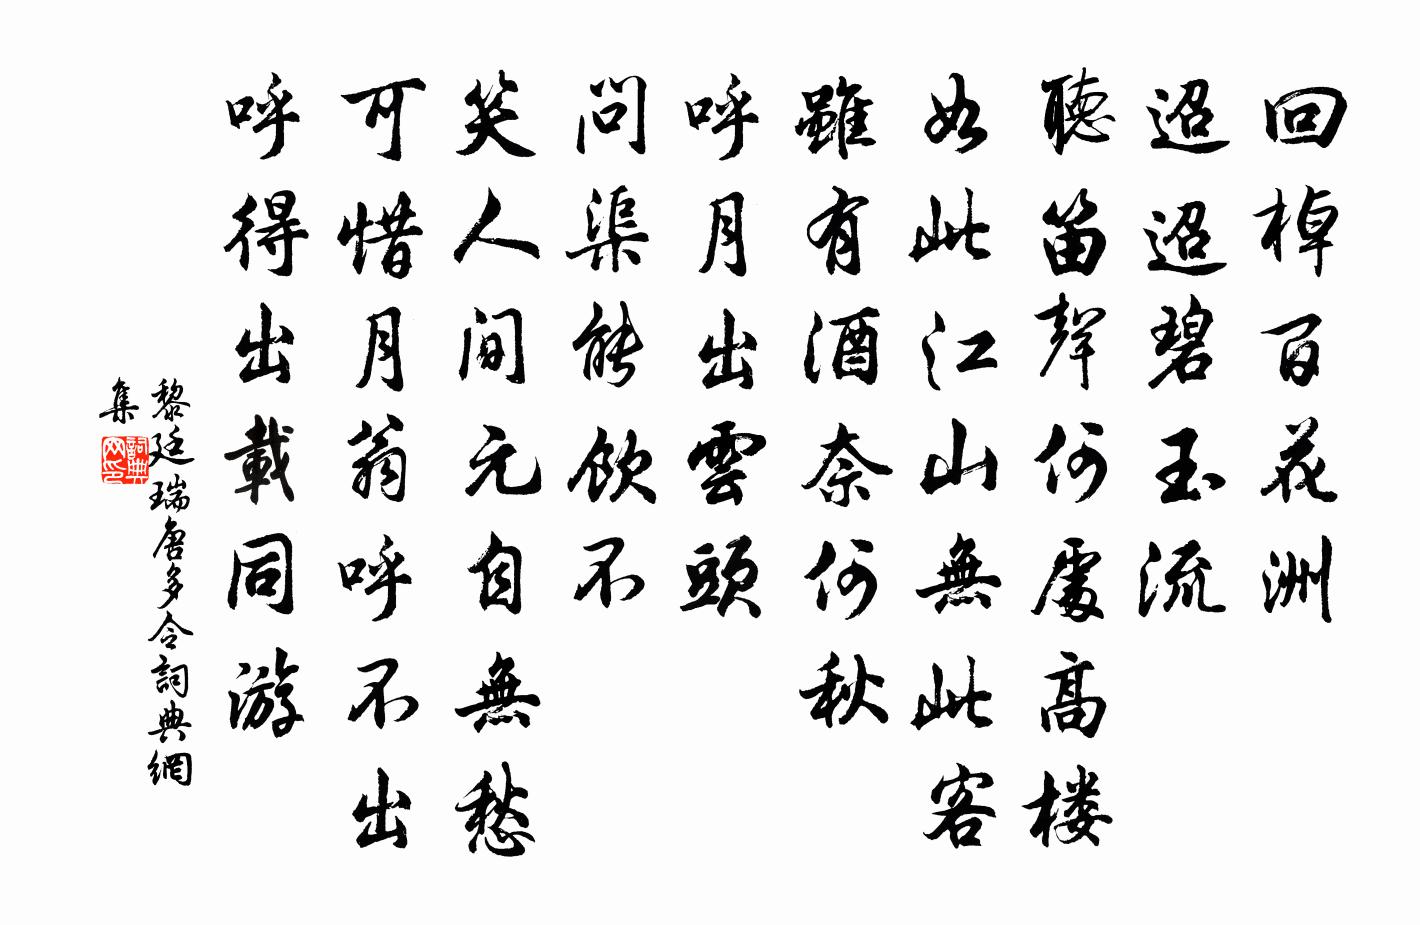 回棹百花洲
迢迢碧玉流
聽笛聲何處高楼
如此江山無此客
雖有酒奈何秋
呼月出雲頭
問渠能飲不
笑人間元自無愁
可惜月翁呼不出
呼得出載同游
黎廷瑞唐多令詞典網
集
詞典
网印